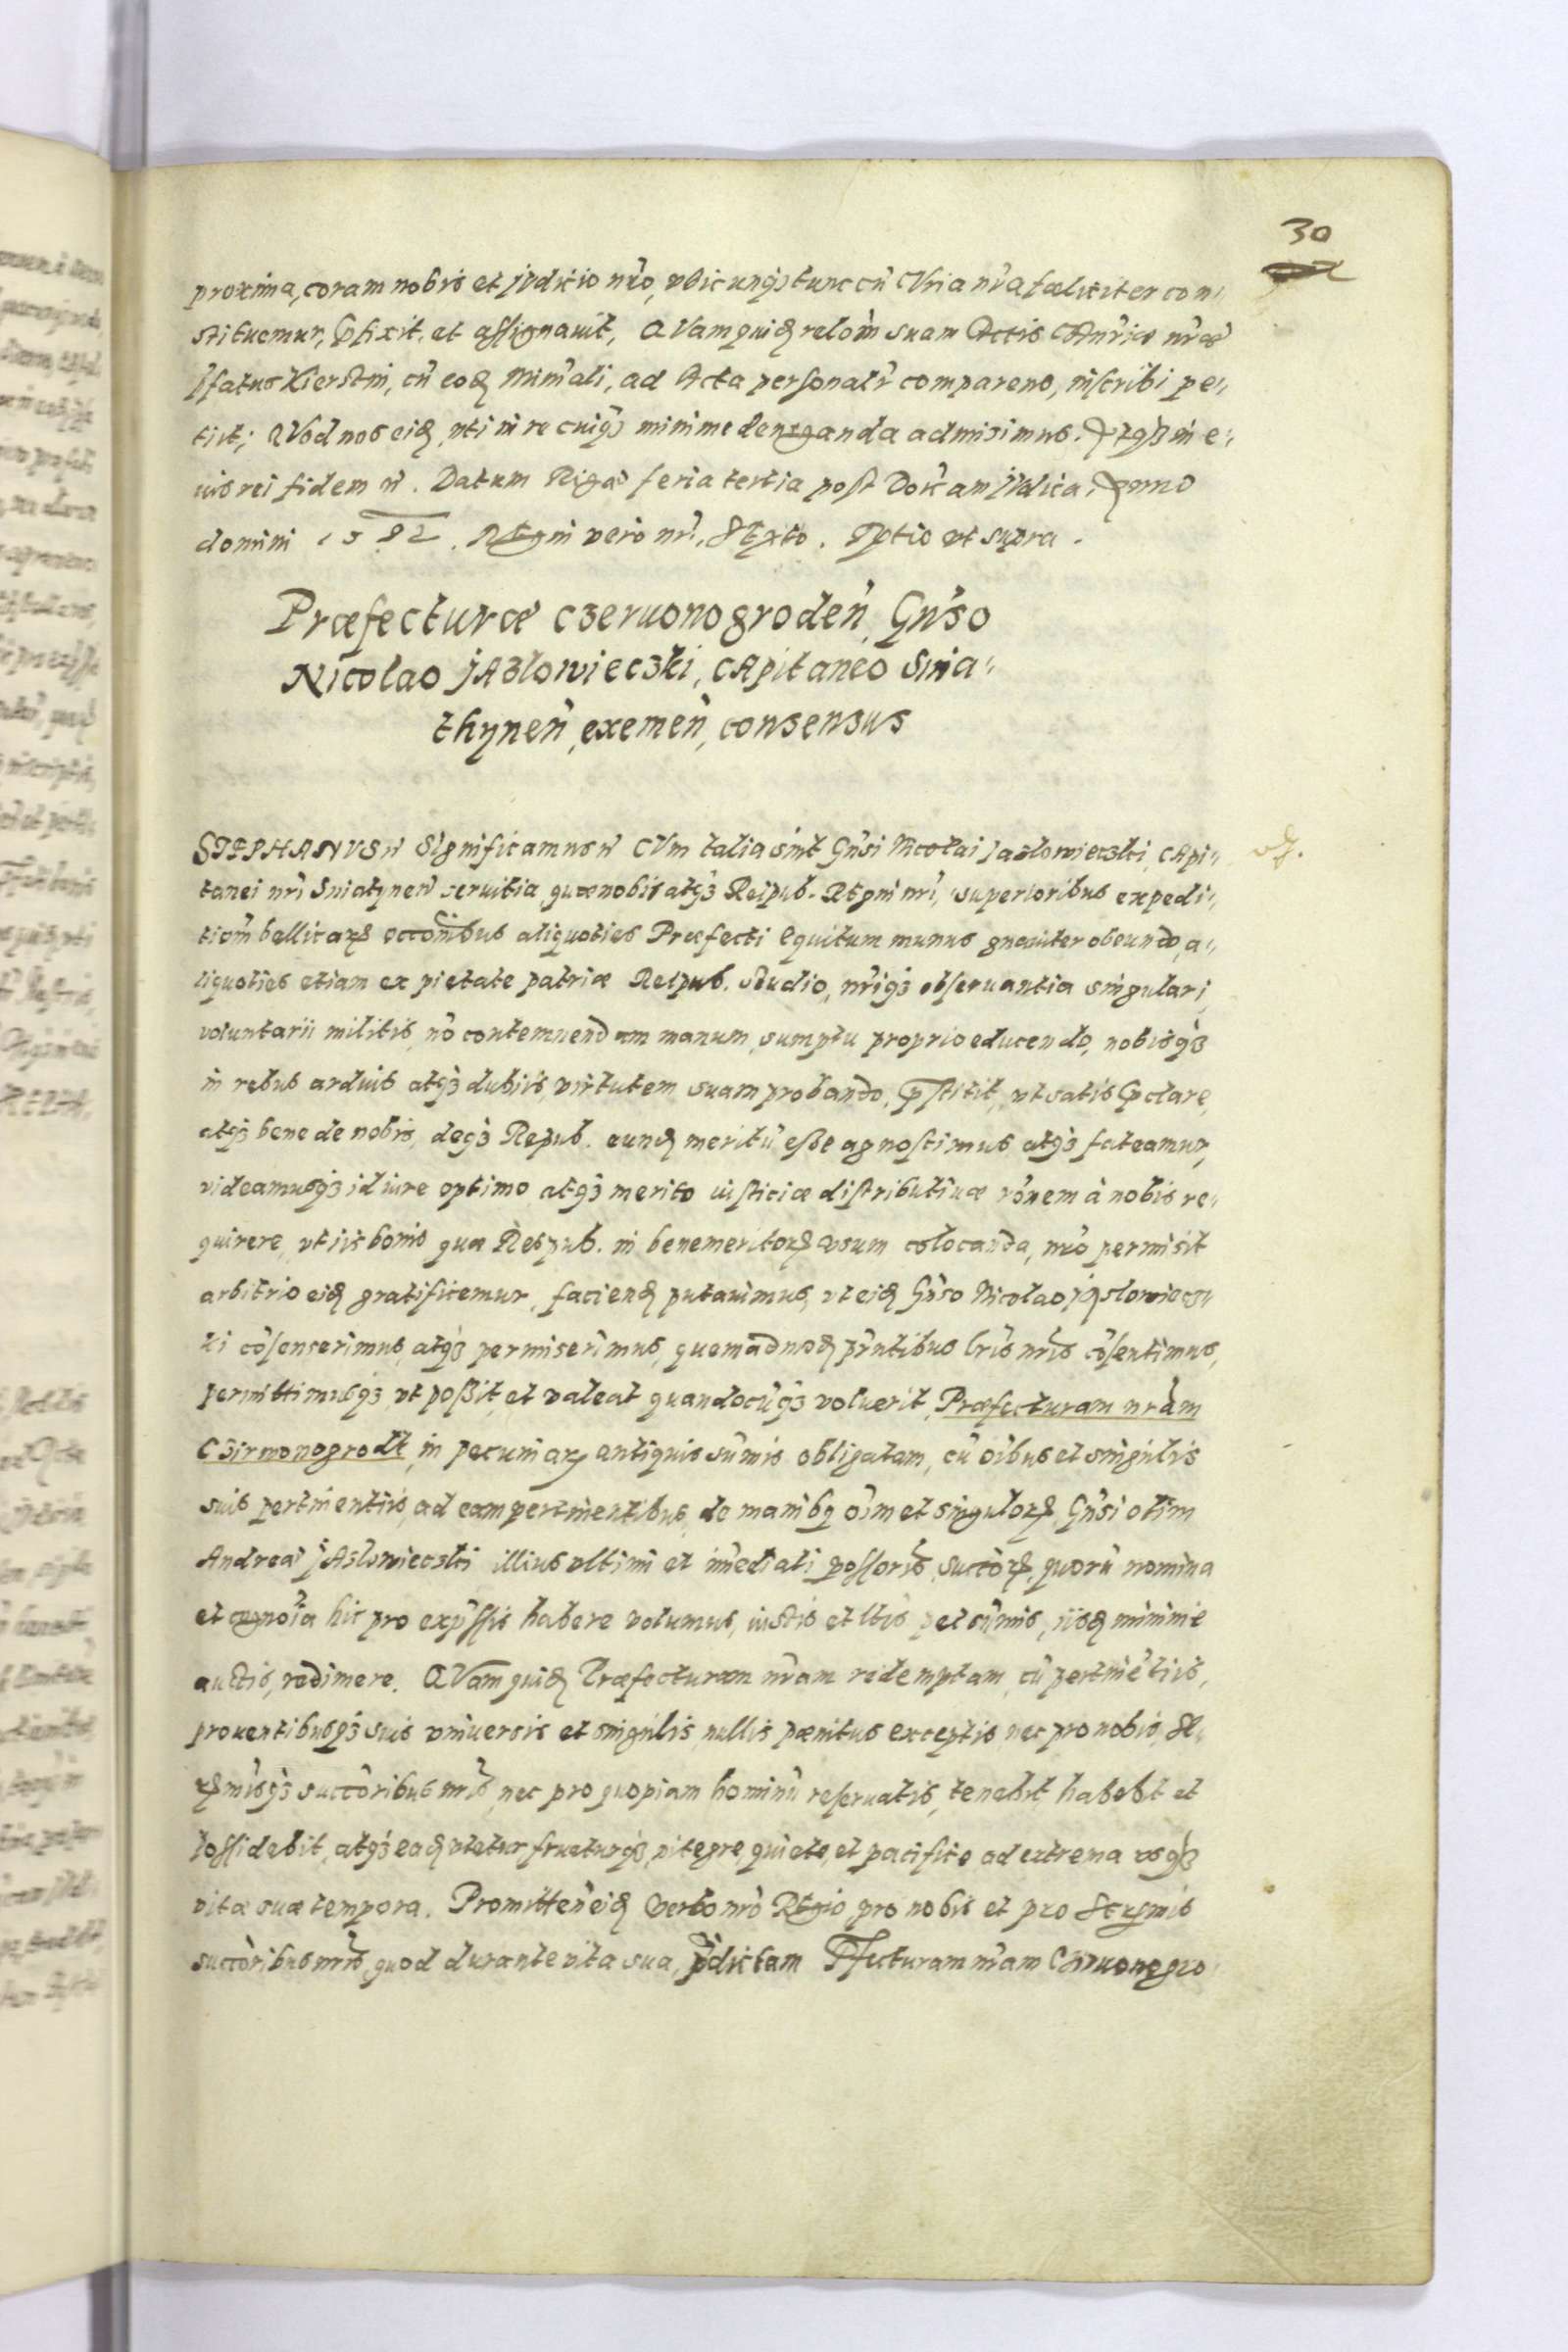 30
proxima, coram nobis et jvdicio nr̃o, vbicunqȝ tunc cũ CVria nr̃a fœliciter con-
stituemur, p̃fixit, et assignauit, QVamquidẽ relõm suam Actis CAnr̃iæ nr̃æ
p̃fatus Kierstin, cũ eodẽ Minr̃ali, ad Acta personalr̃ comparens, inscribi pe-
tiit; QVod nos eidẽ, vti in re cuiqȝ minime deneganda admisimus. In e-
ius rei fidem ñ. Datum Rigæ feria tertia post Dõicam jVdica, Anno
domini 1582. REgni vero nr̃i, SExto. ut supra.
Præfecturæ czeruonogrodeñ, Gñso
Nicolao jAzlowieczki, cApitaneo Snia-
thyneñ, exemeñ, consensus
STEPHANVS ñ Significamus ñ CVm talia sint Gñsi Nicolai Jazlowieczki, CApi-
tanei nr̃i Sniatyneñ seruitia, quæ nobis atqȝ Reipub. REgni nr̃i, superioribus expedi-
tiom̃ bellicarꝝ occõnibus aliquoties Præfecti Equitum munus gnauiter obeundo, a-
liquoties etiam ex pietate patriæ Reipub. studio, nr̃iqȝ obseruantia singulari,
voluntarii militis, nõ contemnendam manum, sumptu proprio educendo, nobisqȝ
in rebus arduis atqȝ dubiis, virtutem suam probando, p̃stitit, vt satis p̃clare,
atqȝ bene de nobis, deqȝ Repub. eundẽ meritũ esse agnoscimus atqȝ fateamur,
videamusqȝ id iure optimo atqȝ merito iusticiæ distributiuæ rõnem à nobis re-
quirere, vt iis bonis quæ Respub. in benemeritorꝝ vsum colocanda, nr̃o permisit
arbitrio eidẽ gratificemur, faciendẽ putauimus, vt eidẽ Gñso Nicolao jAslowiecz-
ki cõsenserimus, atqȝ permiserimus, quemadmodẽ pr̃ntibus lr̃is nr̃is cõsentimus,
permittimusqȝ vt possit, et valeat quandocũqȝ voluerit, Præfecturam nr̃am
Czirwonogrodt, in pecuniarꝝ antiquis sũmis obligatam, cũ oĩbus et singulis
suis pertinentiis, ad eam pertinentibus, de manibꝗ oĩm et singulorꝝ, Gñsi olim
Andreæ jAslowieczki illius vltimi et im̃ediati possoris, succõrꝝ, quorũ nomina
et cognoĩa hic pro exp̃ssis habere volumus, iustis et ltĩs pet sũmis, iisdẽ minime
auctis, redimere. QVam quidẽ Præfecturam nr̃am redemptam, cũ pertinẽtiis,
prouentibusqȝ suis vniuersis et singulis, nullis pænitus exceptis, nec pro nobis, Se-
r̃misqȝ succõribus nr̃is, nec pro quopiam hominũ reseruatis, tenebit, habebit et
possidebit, atqȝ eadẽ vtetur, frueturqȝ, integre, quiete, et pacifice ad extrema vsqȝ
vitæ suæ tempora. Promitteñ eidẽ Verbo nr̃o REgio pro nobis et pro Serꝫmis
succõribus nr̃is, quod durante vita sua, p̃dictam P̃fecturam nr̃am Czeruonogro-